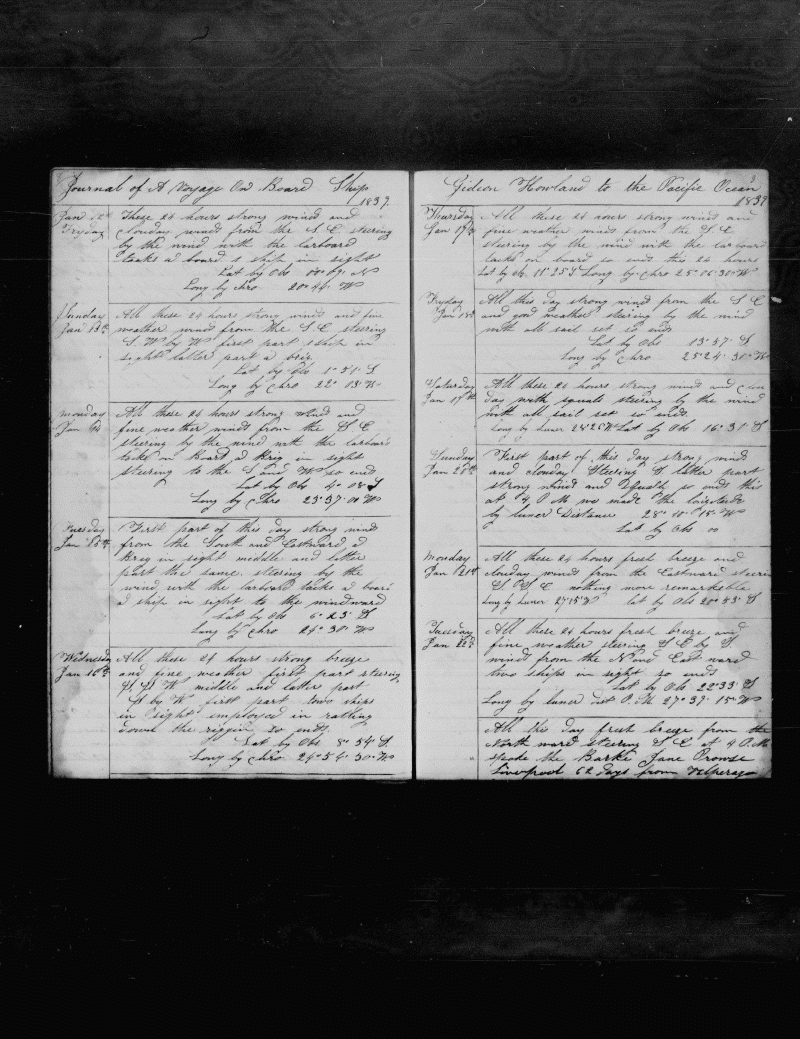 Journal of A Voyage On Board Ship
1839
Jan 12th These 24 hours strong winds and
Fryday cloudy winds from the S E steering
by the wind with the larboard
tacks a board 1 ship in sight
Lat by Obs 00° 69 N
Long by Chro 20° 46 W
Sunday All these 24 hours strong winds and fine
Jan 13th weather winds from the S E steering
S. W by W first part 1 ship in
sight latter part a brig
Lat by Obs 1° 51 S
Long by Chro 22° 13 W
Monday All these 24 hours strong wind and
Jan 14 fine weather winds from the S E
steering by the wind with the larboard
tacks on Board a Brig in sight
steering to the S and W so ends
Lat by Obs 4° 08 S
Long by Chro 23° 37 01 W
Tuesday First part of this day strong wind
Jan 15th from the South and Eastward a
Brig in sight middle and latter
part the same. steering by the
wind with the larboard tacks a board
a ship in sight to the windward
Lat by Obs 6° 23 S
Long by Chro 24° 30 W
Wednesday All these 24 hours strong breeze
Jan 16th and fine weather first part steering
middle and latter part
S by W first part two ships
in sight employed in ratling
down the riggin so ends
Lat by Obs 8° 54 S
Long by Chro 24° 54 30 W
Gideon Howland to the Pacific Ocean
1839
Thursday All these 24 hours strong winds and
Jan 17th fine weather winds from the S E
steering by the wind with the larboard
tacks on board so ends this 24 hours
Lat by Obs 11° 25 S Long by Chro 25° 06 30 W
Fryday All this day strong wind from the S E
Jan 18th and good weather steering by the wind
with all sail set so ends
Lat by Obs 13° 57 S
Long by Chro 25 24 30 W
Saturday All these 24 hours strong wind and
Jan 19th day with squals steering by the wind
with all sail set so ends
Long by Luner 24 25 W Lat by Obs 16° 31 S
Sunday First part of this day strong winds
Jan 20th and cloudy Steering S latter part
strong wind and Squaly so ends this
at 4 P M we made the longitude
by luner Distance 28° 10 15 W
Lat by Obs 00
Monday All these 24 hours fresh breeze and
Jan 21st cloudy winds from the Eastward steering
S. S. E nothing more remarkable
Long by Luner 27 15 W Lat by Obs 20° 53 S
Tuesday All these 24 hours fresh breeze and
Jan 22d fine weather steering S E by S
winds from the N and East ward
two ships in sight so ends
Lat by Obs 22° 33 S
Long by luner dist P. M 27° 37 15 W
All this day fresh breeze from the
North ward steering S E at 4 P. M
spoke the Barke Jane Prowse
Liverpool 62 days from